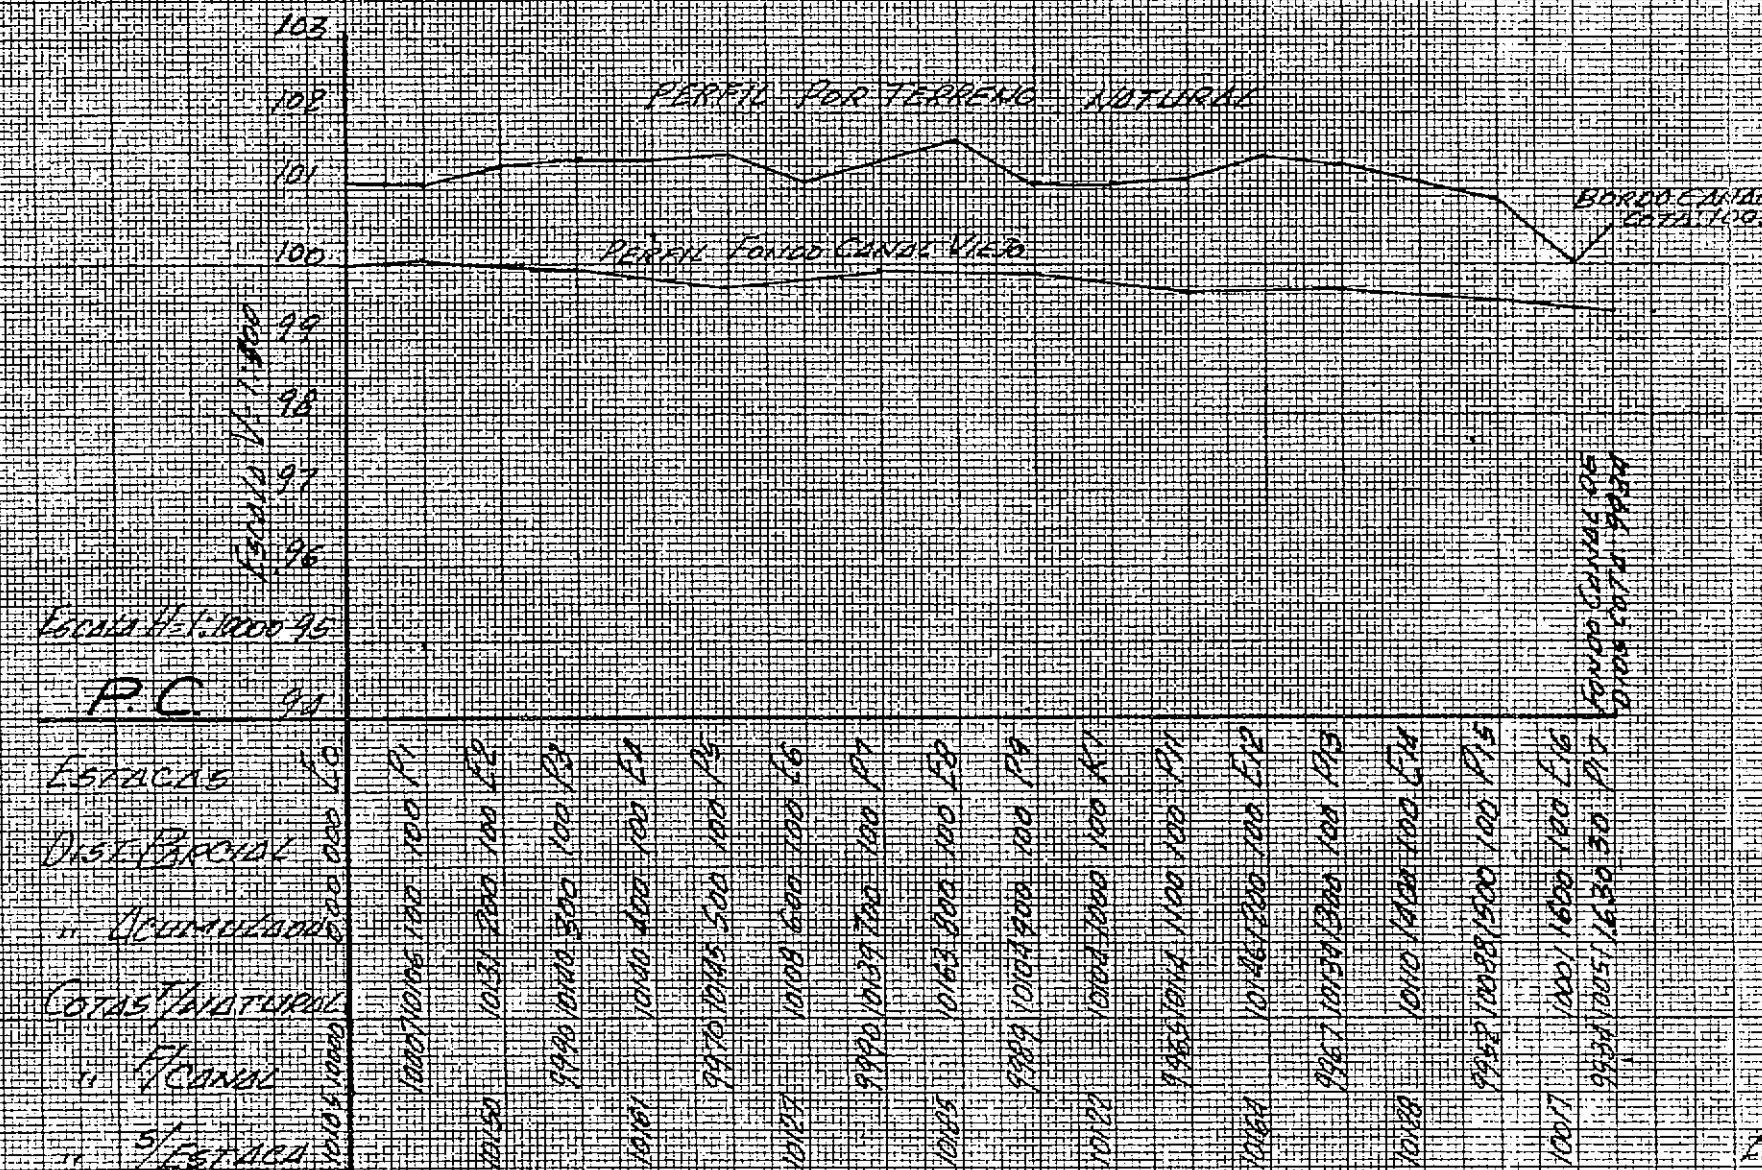 103
102
101
100
99
98
97
96
95
94
PERFIL POR TERRENO NATURAL
BORDO CANAL
COTA: 100
PERFIL FONDO CANAL VIEJO
ESCALA V=1:
ESCALA H=1:10000
P.C.
FONDO CANAL DE
DIOS COTA 9934
ESTACAS E0 P1 E2 P3 E4 P5 E6 P7 E8 P9 K1 P11 E12 P13 E14 P15 E16 P17
DIST. PARCIAL 000 100 100 100 100 100 100 100 100 100 100 100 100 100 100 100 100 30
" ACUMULADA 000 100 200 300 400 500 600 700 800 900 1000 1100 1200 1300 1400 1500 1600 1.630
COTAS T/NATURAL 10106 10131 10140 10140 10145 10108 10139 10163 10104 10104 10114 10146 10134 10110 10088 10001 10051
" F/CANAL 10000 10007 9990 9970 9990 9989 9965 9967 9952 9934
" S/ESTACA 10105 10150 10161 10127 10122 10164 10128 10017